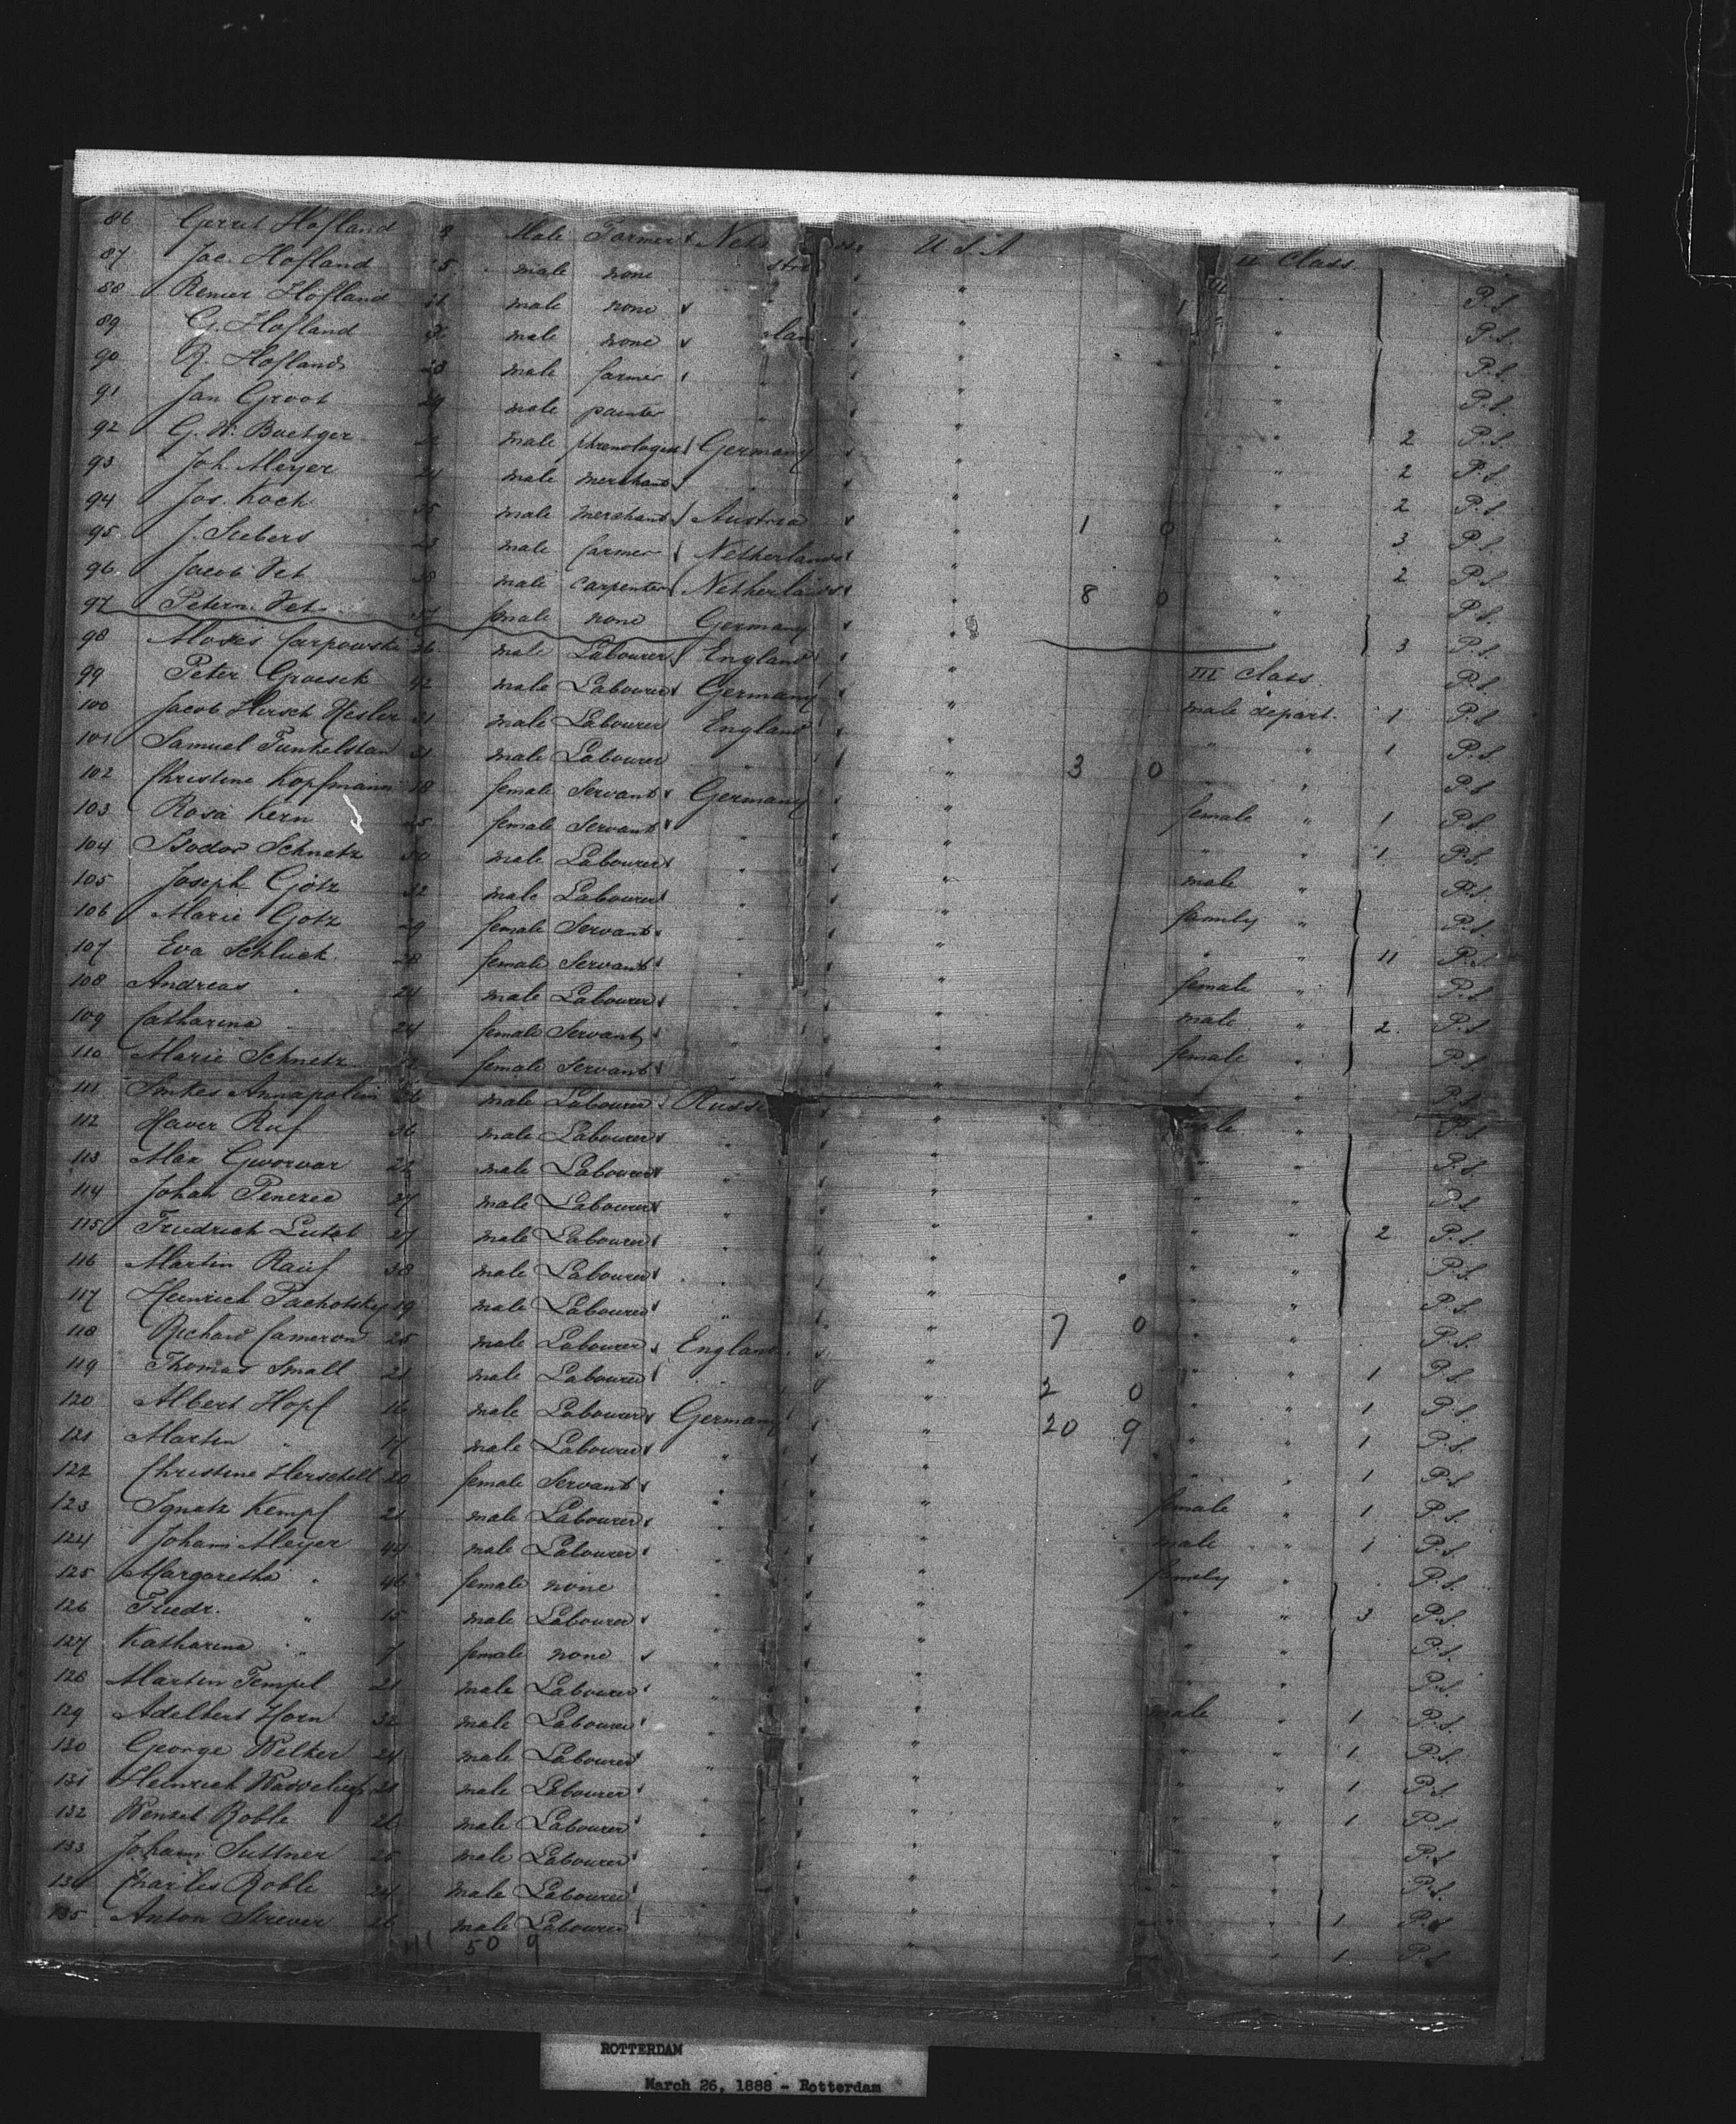 86 Gerrit Hofland Male Farmer U.S.A II Class
87 Jac. Hofland male none " " P.S.
88 Remier Hofland male none " " P.S.
89 G. Hofland male none " " P.S.
90 R. Hofland 28 male farmer " " P.S.
91 Jan Groot 29 male painter " " 2 P.S.
92 G. W. Buetger male phrenologist Germany " " 2 P.S.
93 Joh. Meyer 21 male merchant " " " 2 P.S.
94 Jos. Koch 35 male merchant Austria " 1 0 " 3 P.S.
95 J. Siebers 23 male farmer Netherlands " " 2 P.S.
96 Jacob Vet 38 male carpenter Netherlands " 8 0 " P.S.
97 Petern. Vet 37 female none Germany " 3 P.S.
98 Moses Carpowski 36 male Labourer England " III class. P.S.
99 Peter Groesek 42 male Labourer Germany " male depart. 1 P.S.
100 Jacob Hersch Hesler 21 male Labourer England " " " 1 P.S.
101 Samuel Funkelstan 31 male Labourer " " 3 0 " " P.S.
102 Christine Kopfmann 18 female Servant Germany " female " 1 P.S.
103 Rosa Kern 25 female Servant " " " " 1 P.S.
104 Isodor Schnetz 30 male Labourer " " male " P.S.
105 Joseph Götz 32 male Labourer " " family " P.S.
106 Marie Götz 29 female Servant " " " " 11 P.S.
107 Eva Schluck 28 female Servant " " female " P.S.
108 Andreas " 24 male Labourer " " male " 2 P.S.
109 Catharina " 24 female Servant " " female " P.S.
110 Marie Schnetz 22 female Servant " " " P.S.
111 Annapolin 26 male Labourer " male " P.S.
112 Haver Ruf 36 male Labourer " " " " P.S.
113 Max Gworwar 22 male Labourer " " " " P.S.
114 Johan Peneree 27 male Labourer " " " " 2 P.S.
115 Friedrich Lutat 27 male Labourer " " " " P.S.
116 Martin Rauf 38 male Labourer " " " " P.S.
117 Heinrich Pachotsky 19 male Labourer " " 7 0 " " P.S.
118 Richard Cameron 25 male Labourer England " " " 1 P.S.
119 Thomas Small 21 male Labourer " " 2 0 " " 1 P.S.
120 Albert Hopf 16 male Labourer Germany " 20 9 " " 1 P.S.
121 Martin " 17 male Labourer " " " " 1 P.S.
122 Christine Herschell 20 female Servant " " female " 1 P.S.
123 Ignatz Kempf 21 male Labourer " " male " 1 P.S.
124 Johann Meyer 44 male Labourer " " family " P.S.
125 Margaretha " 46 female none " " " " 3 P.S.
126 Friedr. " 15 male Labourer " " " " P.S.
127 Katharina " 7 female none " " " " P.S.
128 Martin Tempel 21 male Labourer " " male " 1 P.S.
129 Adelbert Horn 32 male Labourer " " " " 1 P.S.
130 George Welker 24 male Labourer " " " " 1 P.S.
131 Heinrich 21 male Labourer " " " " 1 P.S.
132 Wenzel Roble 26 male Labourer " " " P.S.
133 Johann Suttner 25 male Labourer " " " P.S.
134 Charles Roble 24 male Labourer " " " 1 P.S.
135 Anton Strever 26 male Labourer " " " 1 P.S.
41 50 9
ROTTERDAM
March 26, 1888 - Rotterdam